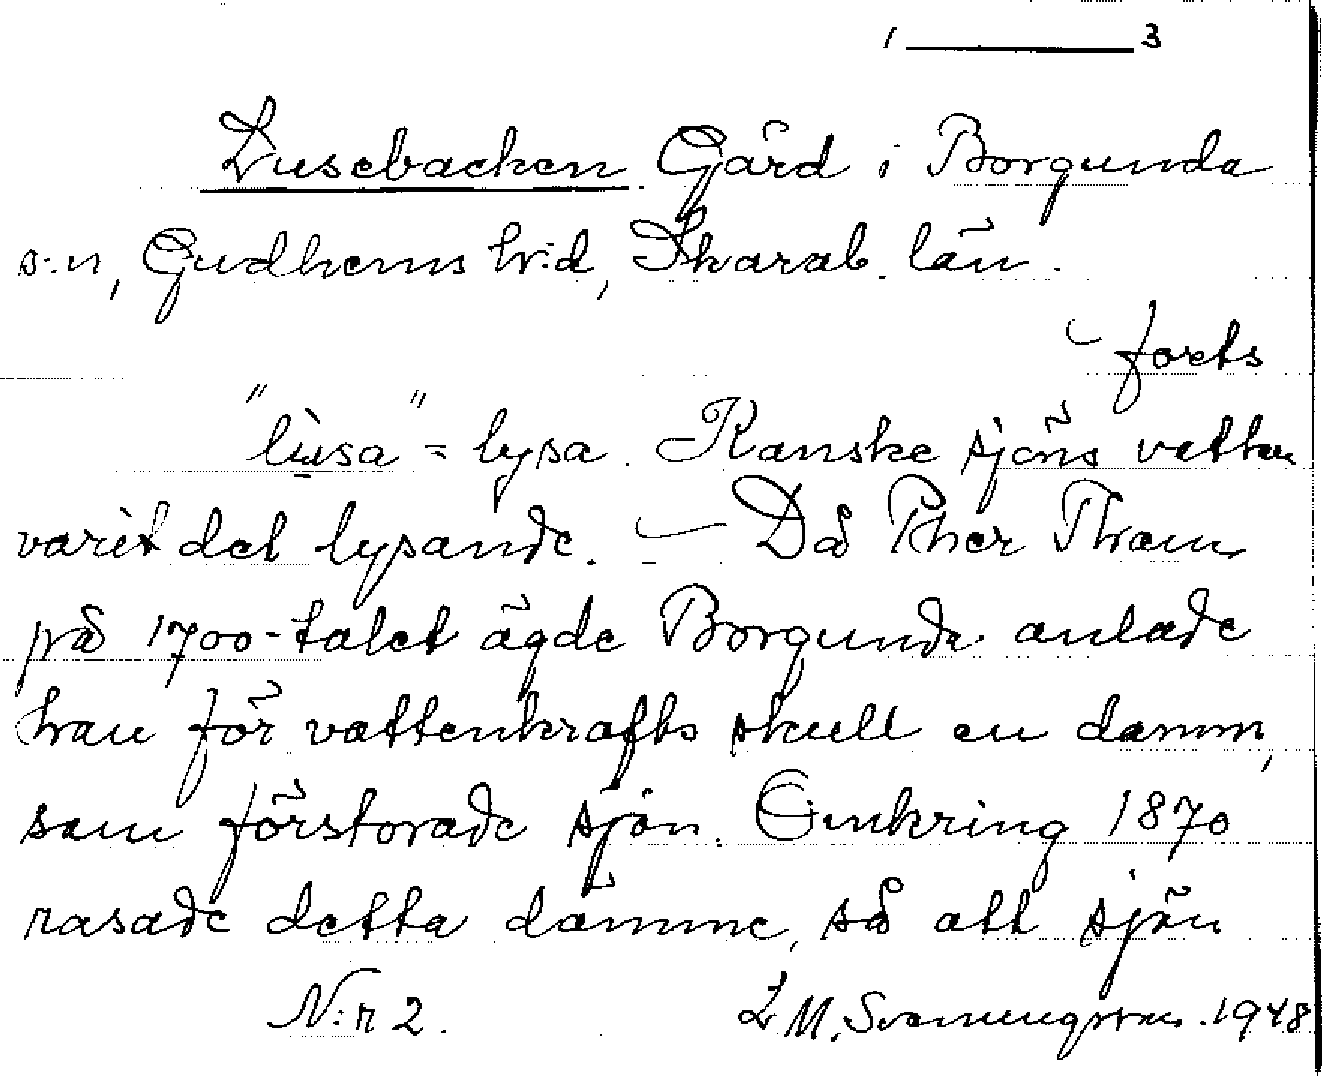 1 ——— 3
Lusebacken Gård i Borgunda
s:n, Gudhems h:d, Skarab. län.
– forts
"lùsa" = lysa. Kanske sjöns vatten
varit det lysande. — Då Pher Tham
på 1700-talet ägde Borgunda anlade
han för vattenkrafts skull en damm,
som förstorade sjön. Omkring 1870
rasade detta dämme, så att sjön
N:r 2. L M. Svenungsson. 1948